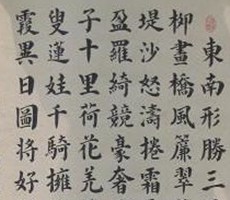 東南形勝三
柳畫橋風簾翠
堤沙怒濤捲霜
盈羅綺競豪奢
子十里荷花羌
叟蓮娃千騎擁
霞異日圖將好